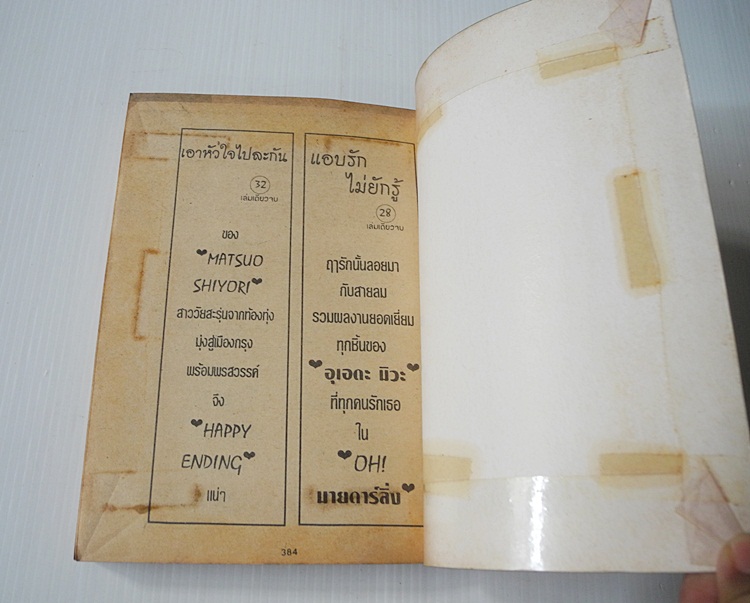 เอาหัวใจไปละกัน
32
เล่มเดียวจบ
ของ
❤MATSUO
SHIYORI❤
สาววัยสะรุ่นจากท้องทุ่ง
มุ่งสู่เมืองกรุง
พร้อมพรสวรรค์
จึง
❤HAPPY
ENDING❤
แน่ๆ
แอบรัก
ไม่ยักรู้
28
เล่มเดียวจบ
ฤๅรักนั้นลอยมา
กับสายลม
รวมผลงานยอดเยี่ยม
ทุกชิ้นของ
❤อุเอดะ มิวะ❤
ที่ทุกคนรักเธอ
ใน
❤OH!
มายดาร์ลิ่ง❤
384